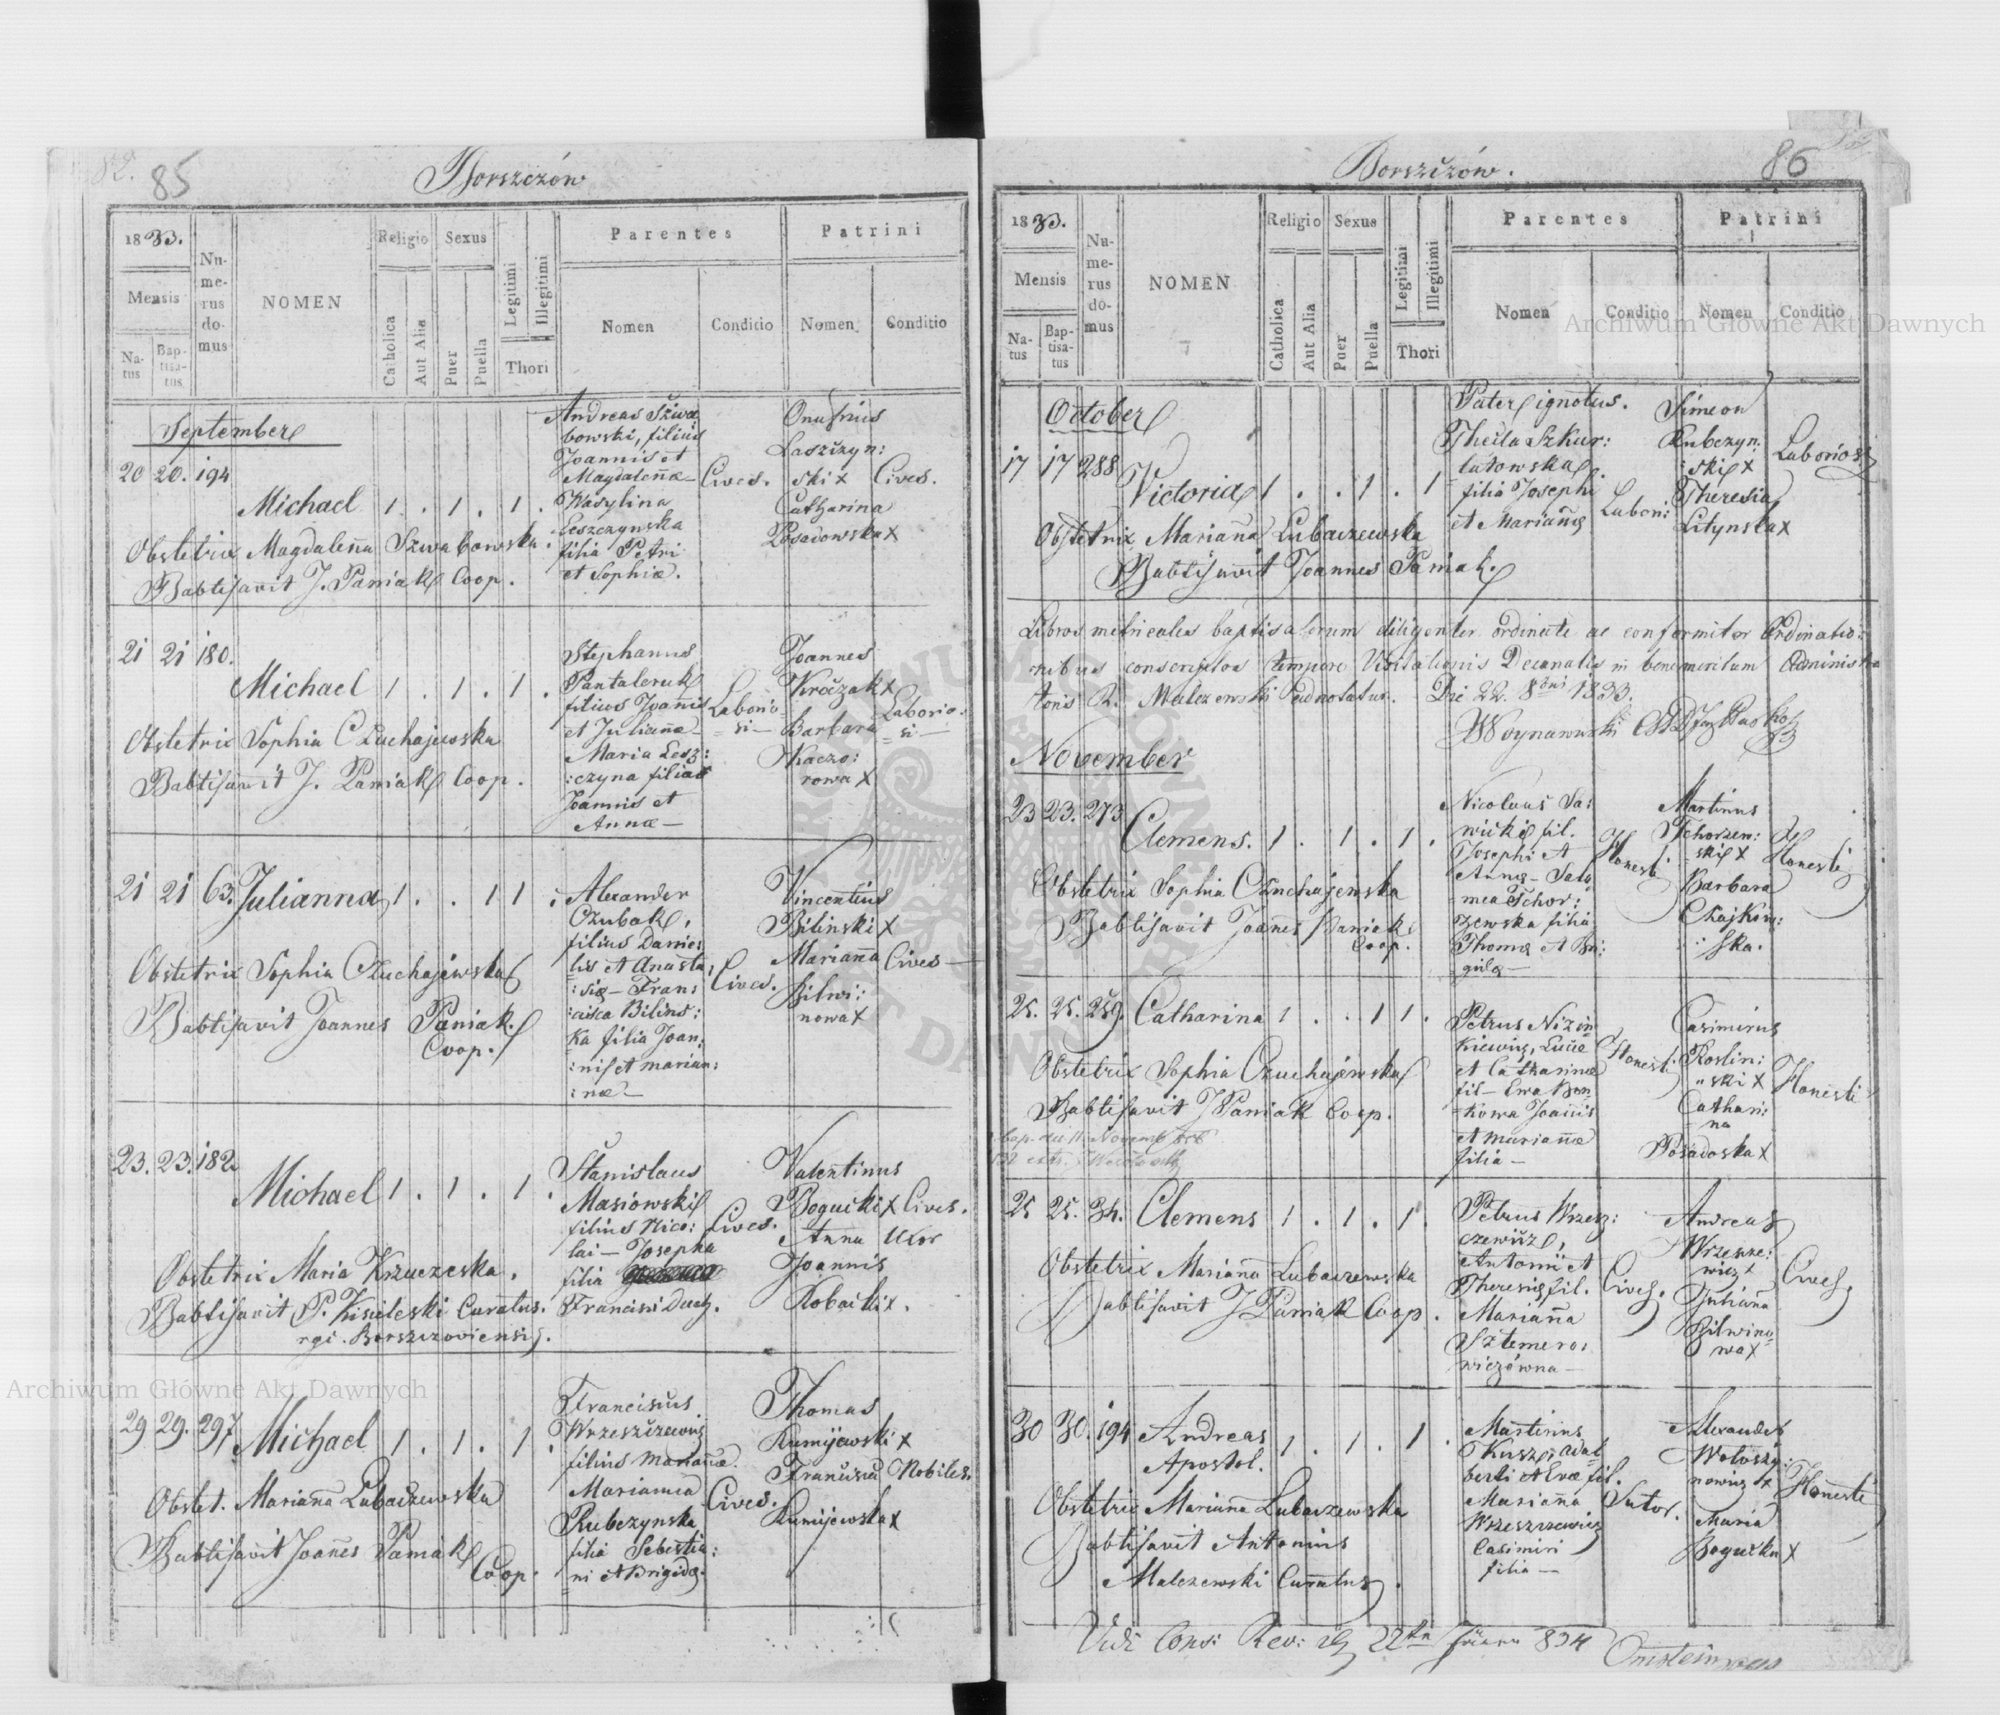 85
Borszczów
1833.
Mensis
Natus
Baptisatus
Numerus domus
NOMEN
Religio
Catholica
Aut Alia
Sexus
Puer
Puella
Legitimi
Illegitimi
Thori
Parentes
Nomen
Conditio
Patrini
Nomen
Conditio
September
20 20. 194
Michael 1 . 1 . 1 .
Obstetrix Magdalena Szwabowska.
Babtisavit J. Paniak Coop.
Andreas Szwa
bowski, filius
Joannis et
Magdalenæ
Wasylina
Leszczynska
filia Petri
et Sophiæ.
Cives.
Onufrius
Laszczyn:
ski x
Catharina
Posadowska x
Cives.
21 21 180.
Michael 1 . 1 . 1 .
Obstetrix Sophia Czuchajewska
Babtisavit J. Paniak Coop.
Stephanus
Pantaleruk
filius Joannis
et Julianæ
Maria Lesz:
:czyna filia
Joannis et
Annæ
Laborio
si
Joannes
Kroczak x
Barbara
Kaczo:
rowa x
Laborio
si
21 21 63. Julianna 1 . . 1 1 .
Obstetrix Sophia Czuchajewska
Babtisavit Joannes Paniak.
Coop.
Alexander
Czubak,
filius Danie:
lis et Anasta:
:siæ Fran:
cisca Bilins:
ka filia Joan:
:nis et marian:
:næ
Cives.
Vincentius
Bilinski x
Marianna
Bilwi:
nowa x
Cives
23. 23. 182.
Michael 1 . 1 . 1 .
Obstetrix Maria Krzuczeska.
Babtisavit P. Kisieleski Curatus.
rgi. Borszczoviensis.
Stanislaus
Masiowski
filius Nico:
lai Josepha
filia
Francisci Duch.
Cives.
Valentinus
Bogucki x
Anna Uxor
Joannis
Robacki x.
Cives.
29 29. 297. Michael 1 . 1 . 1 .
Obstet. Marianna Lubaczewska
Babtisavit Joañes Paniak
Coop.
Franciscus
Wrzeszczewicz
filius Mariannæ.
Marianna
Rubczynska
filia Sebestia:
ni et Brigidæ.
Cives.
Thomas
Rumijewski x
Francisca
Rumijewska x
Nobiles.
86
Borszczów.
1833.
Mensis
Natus
Baptisatus
Numerus domus
NOMEN
Religio
Catholica
Aut Alia
Sexus
Puer
Puella
Legitimi
Illegitimi
Thori
Parentes
Nomen
Conditio
Patrini
Nomen
Conditio
October
17 17 288
Victoria 1 . . 1 . 1
Obstetrix Mariana Lubaczewska
Babtisavit Joannes Paniak.
Pater ignotus.
Thecla Szkur:
latowska
filia Josephi
et Marianæ
Labori:
Simeon
Rubczyn:
:ski x
Theresia
Litynska x
Laboriosi
Libros metricales baptisatorum diligenter ordinate ac conformiter Ordinatio:
nibus conscriptos tempore Visitationis Decanalis in benemeritum Administra
tonis R. Malczewski adnotatur. Die 22. 8bris 1833.
November
23 23. 273
Clemens. 1 . 1 . 1 .
Obstetrix Sophia Czuchajewska
Babtisavit Joañes Paniak
Coop.
Nicolaus Sa:
wicki fil.
Josephi et
Annæ Salo
mea Tchor:
zewska filia
Thomæ et
Honesti
Martinus
Tchorzew:
ski x
Barbara
Chajkow:
ska.
Honesti
25. 25. 259. Catharina 1 . . 1 1 .
Obstetrix Sophia Czuchajewska
Babtisavit J Paniak Coop.
Petrus Nizin
kiewicz, Lucæ
et Catharinæ
fil Ewa Bon
kowa Joañis
et Mariañæ
filia
Honesti
Casimirus
Roslin:
ski x
Cathari:
na
Posadoska x
Honesti
25 25. 34. Clemens 1 . 1 . 1 .
Obstetrix Mariaña Lubaczewska
Babtisavit J Paniak Coop.
Petrus Wrzesz:
czewicz,
Antonii et
Theresiæ fil.
Mariaña
Sztemero:
wiczówna
Cives.
Andreas
Wrzeszcze:
wicz x
Juliaña
Bilwino
wa x
Cives.
30 30. 194 Andreas 1 . 1 . 1 .
Apostol.
Obstetrix Mariana Lubaczewska
Babtisavit Antonius
Malczewski Curatus.
Martinus
Kusz, Adal
berti et Evæ fil.
Mariaña
Wrzeszczewicz
Casimiri
filia
Sutor.
Alexander
Woloszy:
nowicz x
Maria
Bogucka x
Honesti
Vidi
22
834
Archiwum Główne Akt Dawnych
Archiwum Główne Akt Dawnych
ARCHIWUM GŁÓWNE AKT DAWNYCH